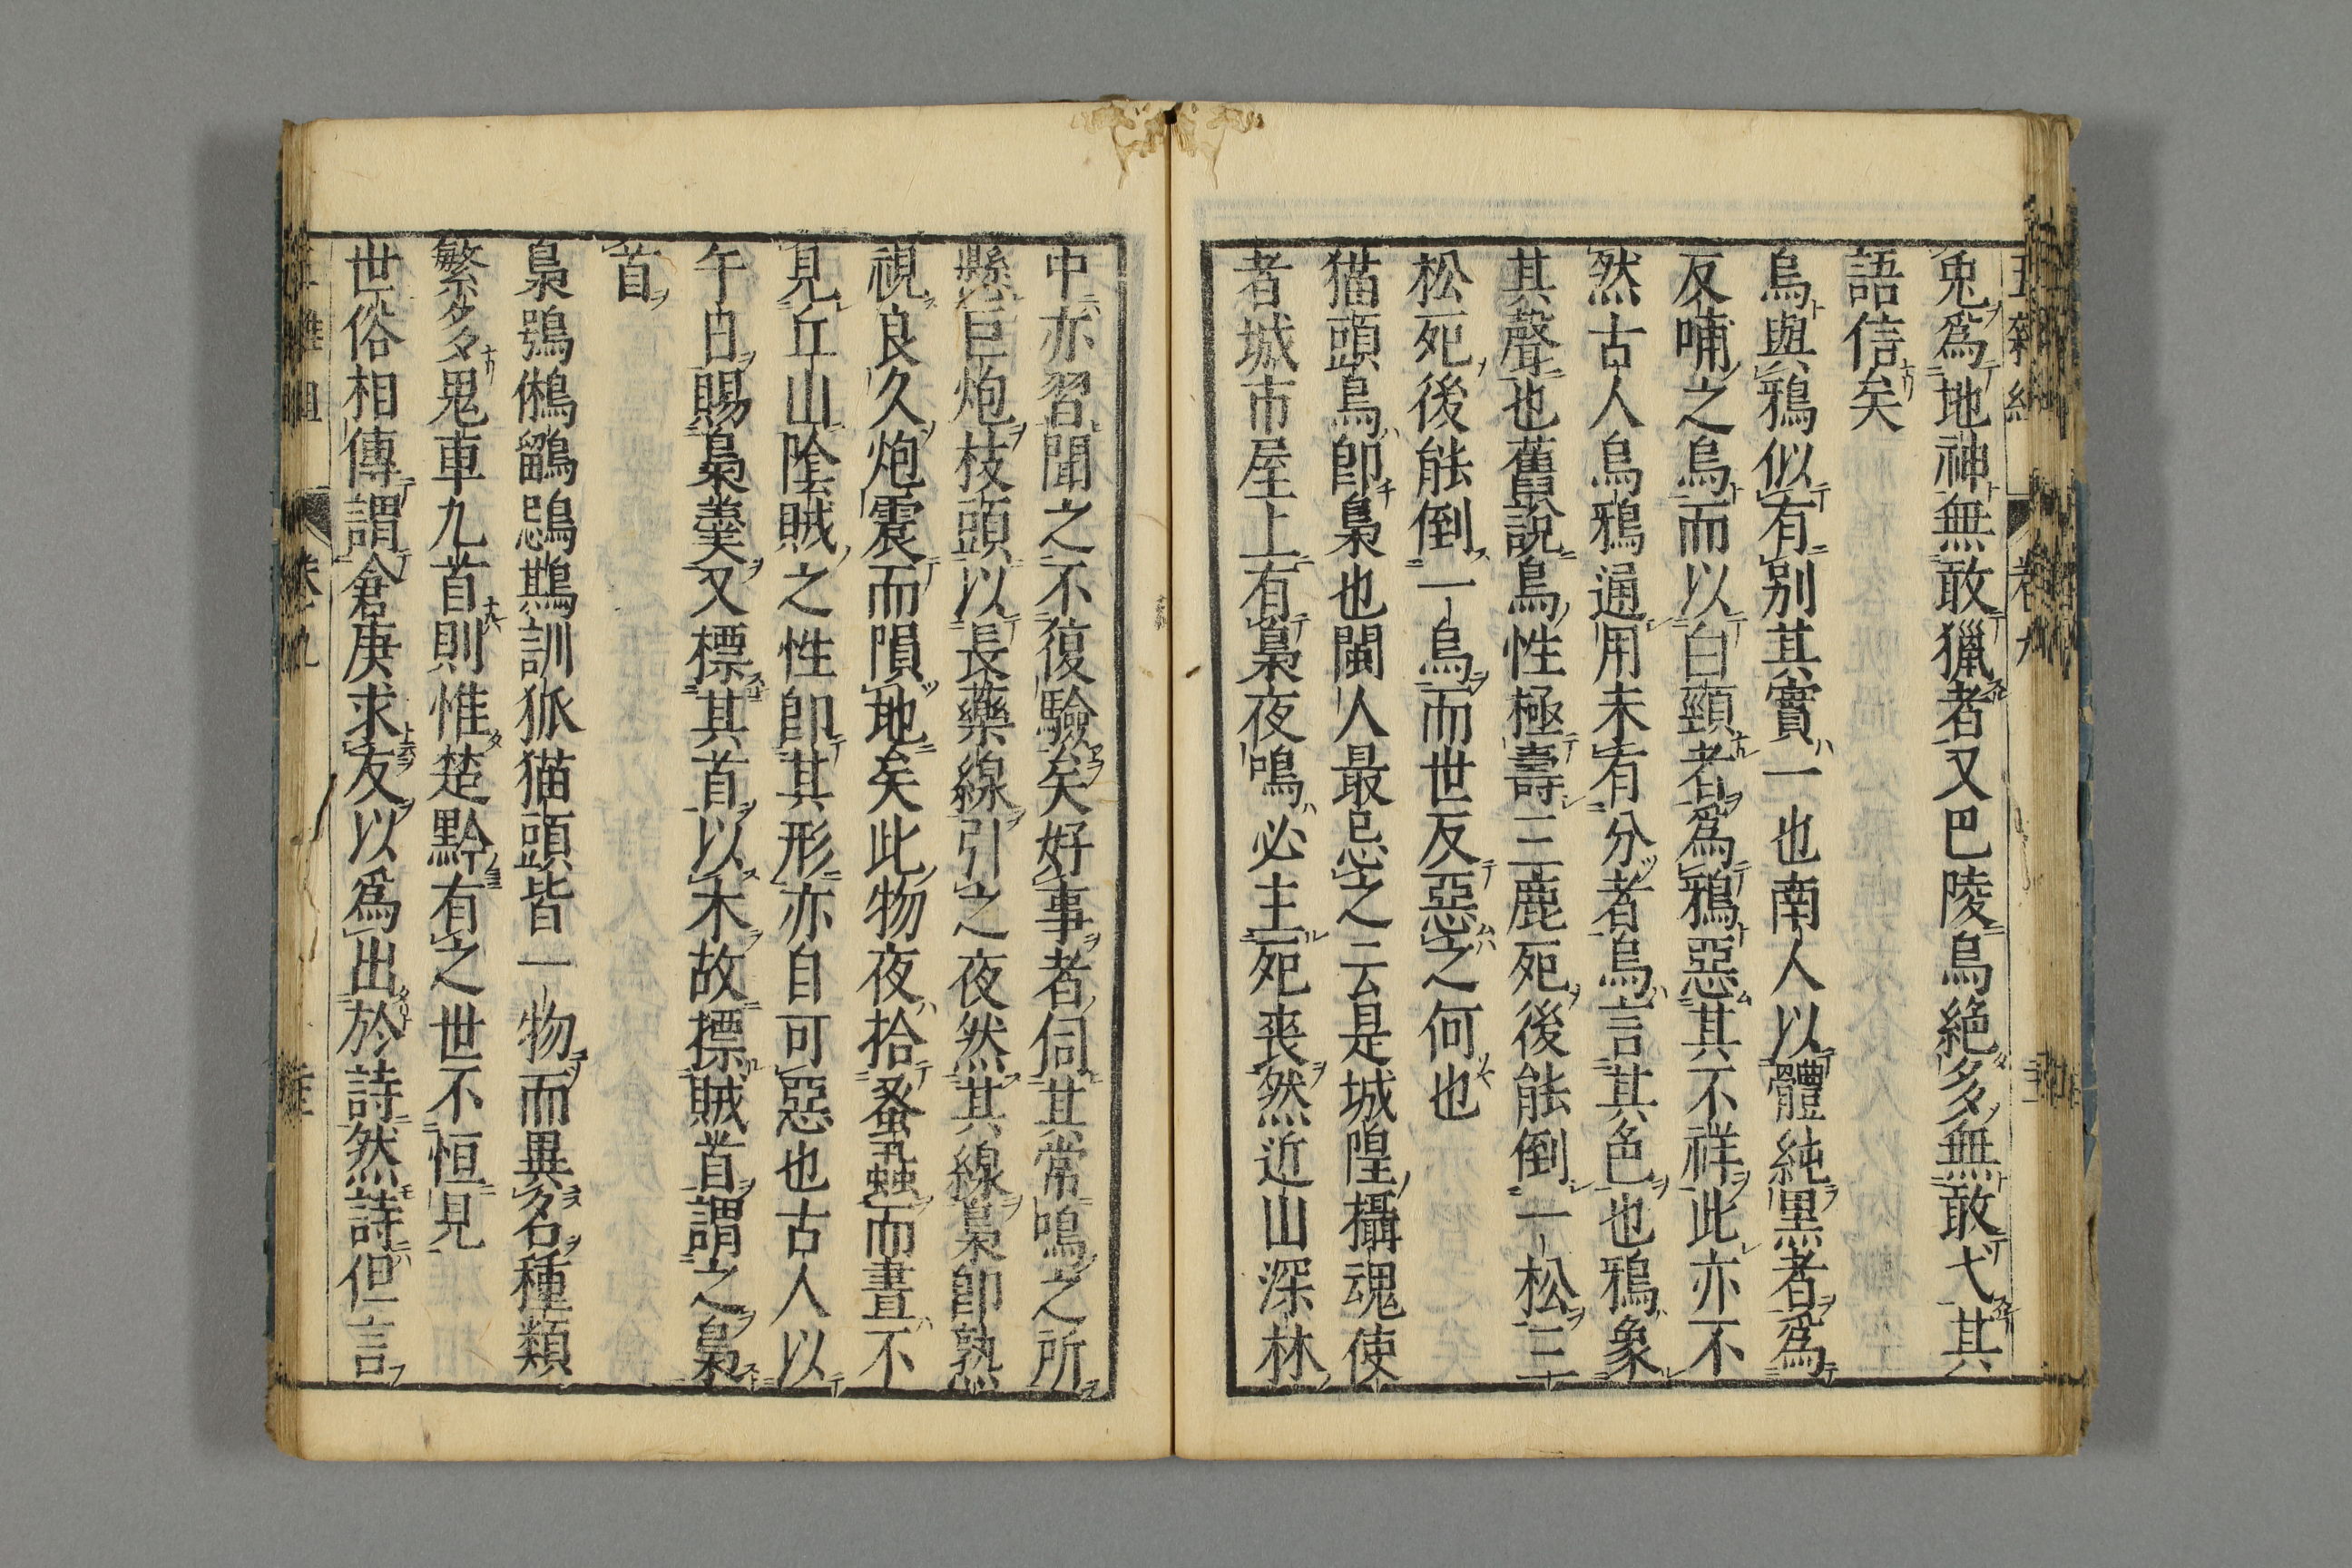 兎為地神無敢獵者又巴陵烏絕多無敢弋其
語信矣
烏與鴉似有別其實一也南人以體純黑者為
反哺之烏而以白頸者為鴉惡其不祥此亦不
然古人烏鴉通用未有分者烏言其色也鴉象
其聲也舊說烏性極壽三鹿死後能倒一松三
松死後能倒一烏而世反惡之何也
猫頭鳥卽梟也閩人最忌之云是城隍攝魂使
者城市屋上有梟夜鳴必主死喪然近山深林
中亦習聞之不復驗矣好事者伺其常鳴之所
懸巨炮枝頭以長藥線引之夜然其線梟卽熟
視良久炮震而隕地矣此物夜拾蚤蝨而晝不
見丘山陰賊之性卽其形亦自可惡也古人以
午日賜梟羹又標其首以木故摽賊首謂之梟
首
梟鴞鵂鶹鵋䳢訓狐猫頭皆一物而異名種類
繁多鬼車九首則惟楚黔有之世不恒見
世俗相傳謂倉庚求友以為出於詩然詩但言